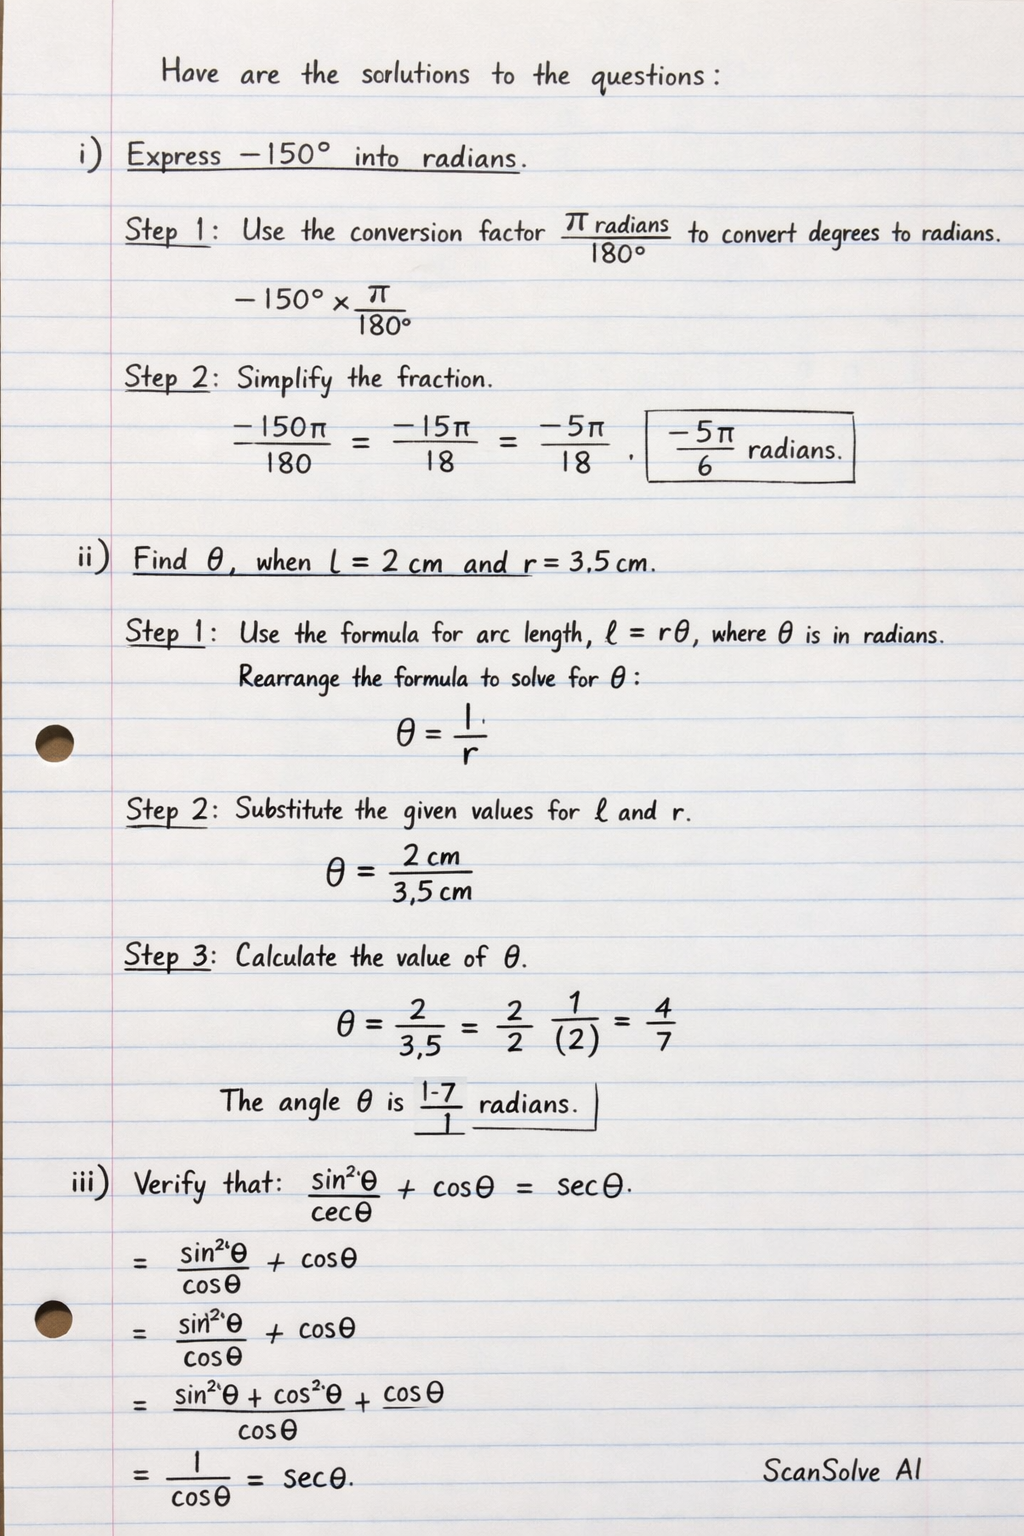 Have are the sorlutions to the questions:
i) Express −150° into radians.
Step 1: Use the conversion factor π radians/180° to convert degrees to radians.
−150° × π/180°
Step 2: Simplify the fraction.
−150π/180 = −15π/18 = −5π/18 . −5π/6 radians.
ii) Find θ, when l = 2 cm and r = 3.5 cm.
Step 1: Use the formula for arc length, ℓ = rθ, where θ is in radians.
Rearrange the formula to solve for θ:
θ = l/r
Step 2: Substitute the given values for ℓ and r.
θ = 2 cm/3,5 cm
Step 3: Calculate the value of θ.
θ = 2/3,5 = 2/2 1/(2) = 4/7
The angle θ is 1-7/1 radians.
iii) Verify that: sin²θ/cecθ + cosθ = secθ.
= sin²θ/cosθ + cosθ
= sin²θ/cosθ + cosθ
= sin²θ + cos²θ/cosθ + cosθ
= 1/cosθ = secθ.
ScanSolve AI